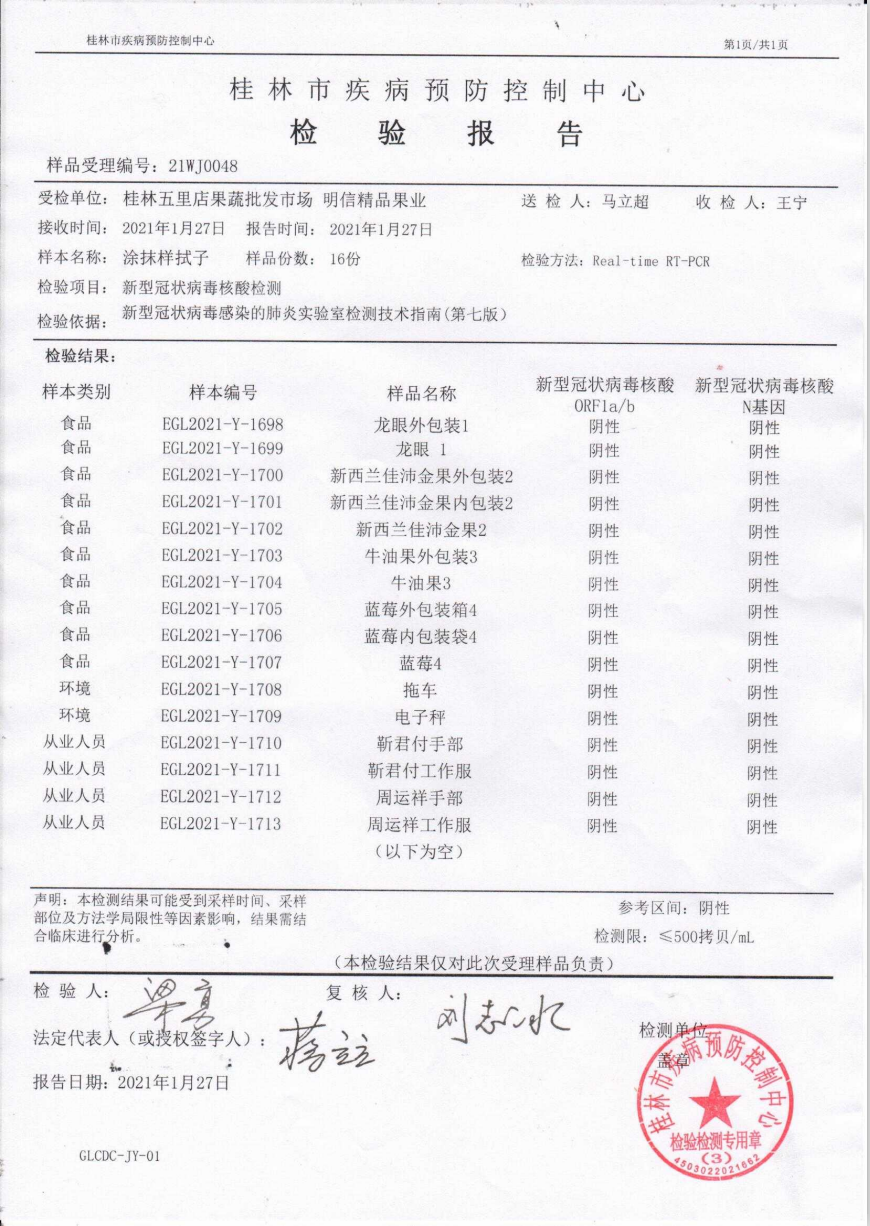 桂林市疾病预防控制中心 第1页/共1页
桂林市疾病预防控制中心
检验报告
样品受理编号：21WJ0048
受检单位：桂林五里店果蔬批发市场 明信精品果业 送检人：马立超 收检人：王宁
接收时间：2021年1月27日 报告时间：2021年1月27日
样本名称：涂抹样拭子 样品份数：16份 检验方法：Real-time RT-PCR
检验项目：新型冠状病毒核酸检测
检验依据：新型冠状病毒感染的肺炎实验室检测技术指南(第七版）
检验结果：
样本类别 样本编号 样品名称 新型冠状病毒核酸 新型冠状病毒核酸
ORF1a/b N基因
食品 EGL2021-Y-1698 龙眼外包装1 阴性 阴性
食品 EGL2021-Y-1699 龙眼 1 阴性 阴性
食品 EGL2021-Y-1700 新西兰佳沛金果外包装2 阴性 阴性
食品 EGL2021-Y-1701 新西兰佳沛金果内包装2 阴性 阴性
食品 EGL2021-Y-1702 新西兰佳沛金果2 阴性 阴性
食品 EGL2021-Y-1703 牛油果外包装3 阴性 阴性
食品 EGL2021-Y-1704 牛油果3 阴性 阴性
食品 EGL2021-Y-1705 蓝莓外包装箱4 阴性 阴性
食品 EGL2021-Y-1706 蓝莓内包装袋4 阴性 阴性
食品 EGL2021-Y-1707 蓝莓4 阴性 阴性
环境 EGL2021-Y-1708 拖车 阴性 阴性
环境 EGL2021-Y-1709 电子秤 阴性 阴性
从业人员 EGL2021-Y-1710 靳君付手部 阴性 阴性
从业人员 EGL2021-Y-1711 靳君付工作服 阴性 阴性
从业人员 EGL2021-Y-1712 周运祥手部 阴性 阴性
从业人员 EGL2021-Y-1713 周运祥工作服 阴性 阴性
（以下为空）
声明：本检测结果可能受到采样时间、采样
部位及方法学局限性等因素影响，结果需结
合临床进行分析。
参考区间：阴性
检测限：≤500拷贝/mL
（本检验结果仅对此次受理样品负责）
检验人：梁勇 复核人：
法定代表人（或授权签字人）：
检测单位
盖章
报告日期：2021年1月27日
桂林市疾病预防控制中心
检验检测专用章
(3)
4503022021662
GLCDC-JY-01